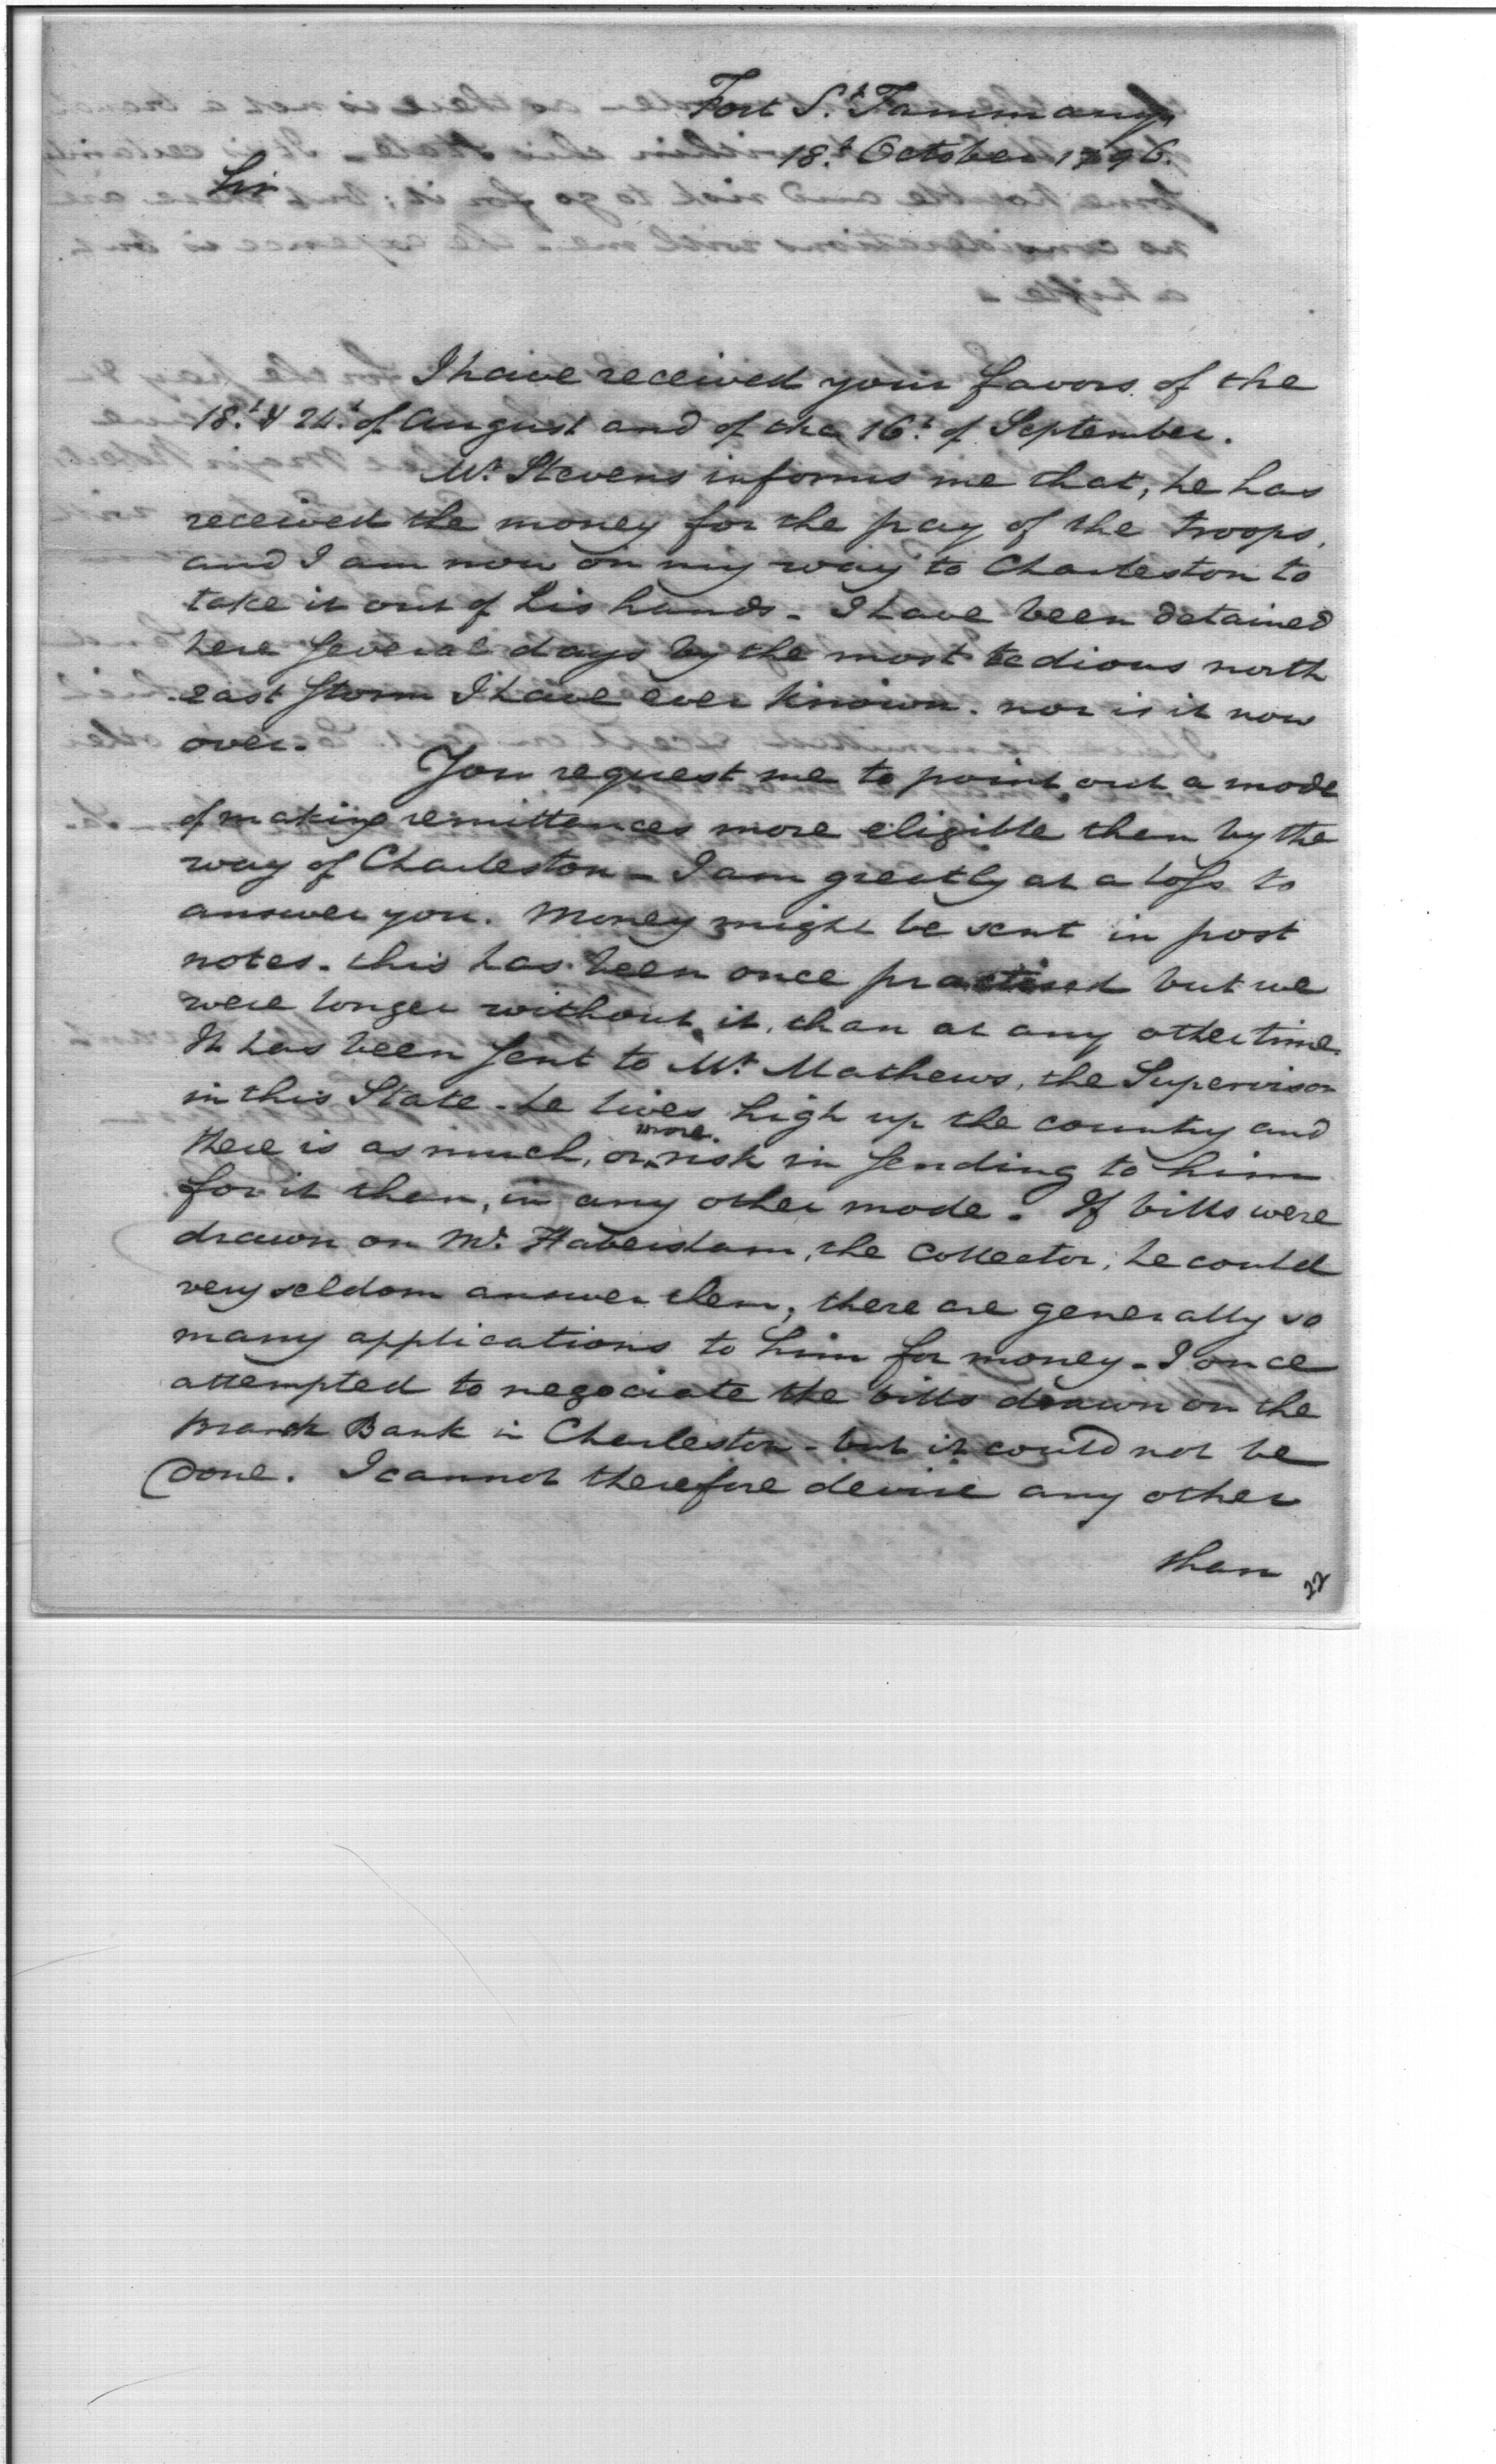 Fort St. Tammany
18.t October 1796.
Sir
I have received your favors of the
18.t & 24.t of August and of the 16.t of September.
Mr. Stevens informs me that, he has
received the money for the pay of the troops,
and I am now on my way to Charleston to
take it out of his hands - I have been detained
here several days by the most tedious north
east storm I have ever known. nor is it now
over.
You request me to point out a mode
of making remittances more eligible then by the
way of Charleston - I am greatly at a loss to
answer you. Money might be sent in post
notes - this has been once practised but we
were longer without it, than at any other time.
It has been sent to Mr. Mathews, the Supervisor
in this State - he lives high up the country and
there is as much, or more risk in sending to him
for it then, in any other mode. If bills were
drawn on Mr. Habersham, the Collector, he could
very seldom answer them, there are generally so
many applications to him for money - I once
attempted to negociate the bills drawn on the
Branch Bank in Charleston - but it could not be
done. I cannot therefore devise any other
than
22